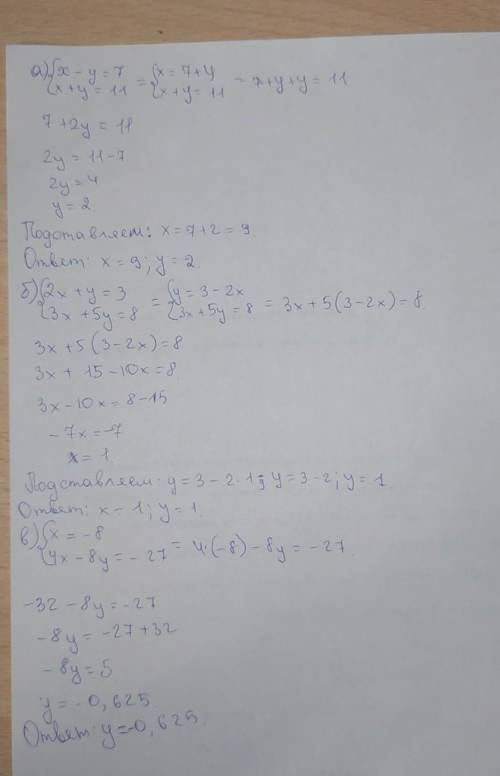 а) {x - y = 7 = {x = 7 + y = 7+y+y = 11
{x + y = 11 {x + y = 11
7 + 2y = 11
2y = 11 - 7
2y = 4
y = 2
Подставляем: x = 7 + 2 = 9.
Ответ: x = 9; y = 2.
б) {2x + y = 3 = {y = 3 - 2x = 3x + 5(3 - 2x) = 8
{3x + 5y = 8 {3x + 5y = 8
3x + 5(3 - 2x) = 8
3x + 15 - 10x = 8
3x - 10x = 8 - 15
-7x = -7
x = 1
Подставляем: y = 3 - 2 · 1; y = 3 - 2; y = 1
Ответ: x - 1; y = 1.
в) {x = -8
{4x - 8y = -27 = 4·(-8) - 8y = -27.
-32 - 8y = -27
-8y = -27 + 32
-8y = 5
y = -0,625.
Ответ: y = -0,625.